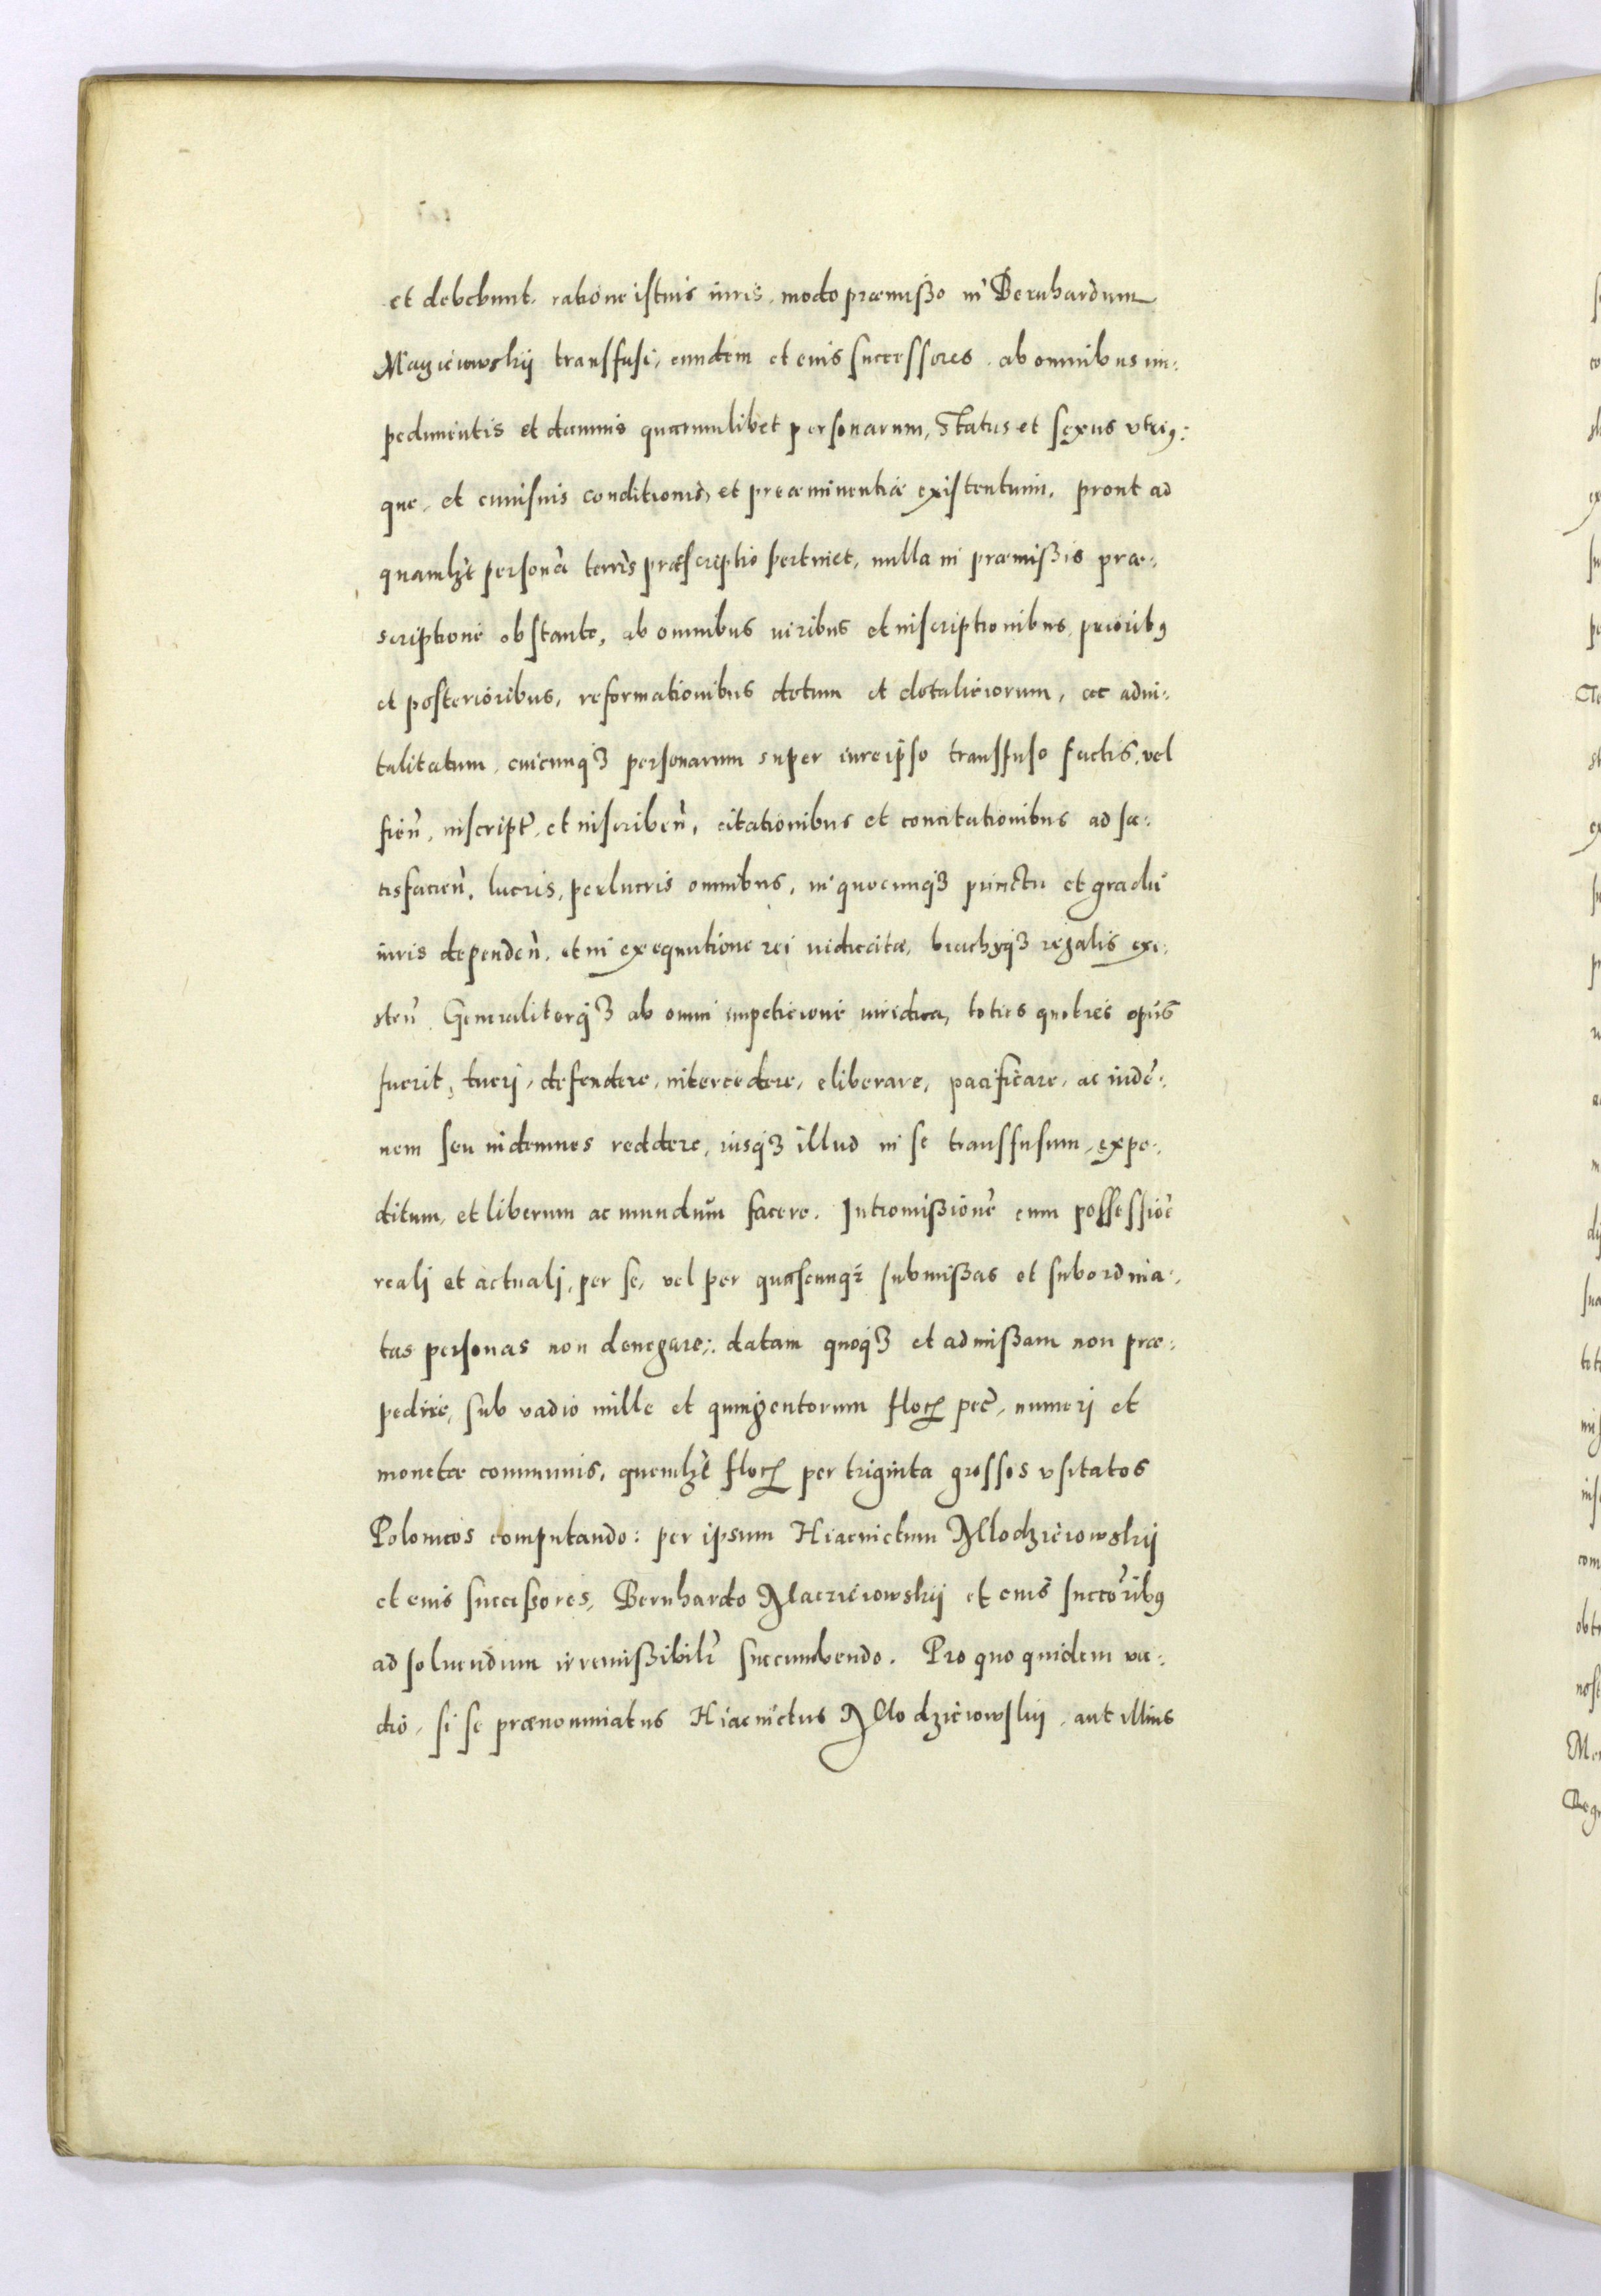 et debebunt, ratione istius iuris, modo præmißo in Bernhardum
Macieiowskij transfusi, eundem et eius successores, ab omnibus im:
pedimentis et damnis quarumlibet personarum, Status et sexus vtriꝰ:
que, et cuiusuis conditionis, et præeminentiæ existentium, prout ad
quamlꝫt personã terris præscriptio pertinet, nulla in præmißis præ:
scriptione obstante, ab omnibus iuribus et inscriptionibus, prioribꝰ
et posterioribus, reformationibus dotum et dotalitiorum, ac adui:
talitatum, cuicunqꝫ personarum super iure ipso transfuso factis, vel
fieñ, inscript̃, et inscribeñ, citationibus et concitationibus ad sa:
tisfacieñ, lucris, perlucris omnibus, in quocunqꝫ puncto et gradu
iuris dependeñ, et in exequutione rei iudicatæ, brachyqꝫ regalis exi:
steñ. Generaliterqꝫ ab omni impeticione iuridica, toties quoties opus
fuerit, tuerj, defendere, intercedere, eliberare, pacificare, ac indẽ:
nem seu indemnes reddere, iusqꝫ illud in se transfusum, expe:
ditum, et liberum ac mundum facere. Intromißionẽ cum possessiõe
realj et actualj, per se, vel per quascunqꝫ submißas et subordina:
tas personas non denegare: datam quoqꝫ et admißam non præ:
pedire, sub vadio mille et quingentorum floꝝ pec̃, numerj et
monetæ communis, quemlꝫt floꝝ per triginta grossos vsitatos
Polonicos computando: per ipsum Hiacinctum Mlodzieiowskij
et eius succeßores, Bernhardo Macieiowskij et eius succõribꝰ
ad soluendum irremißibilr̃ succumbendo. Pro quo quidem va:
dio, si se prænominatus Hiacinctus Mlodzieiowskij, aut illius